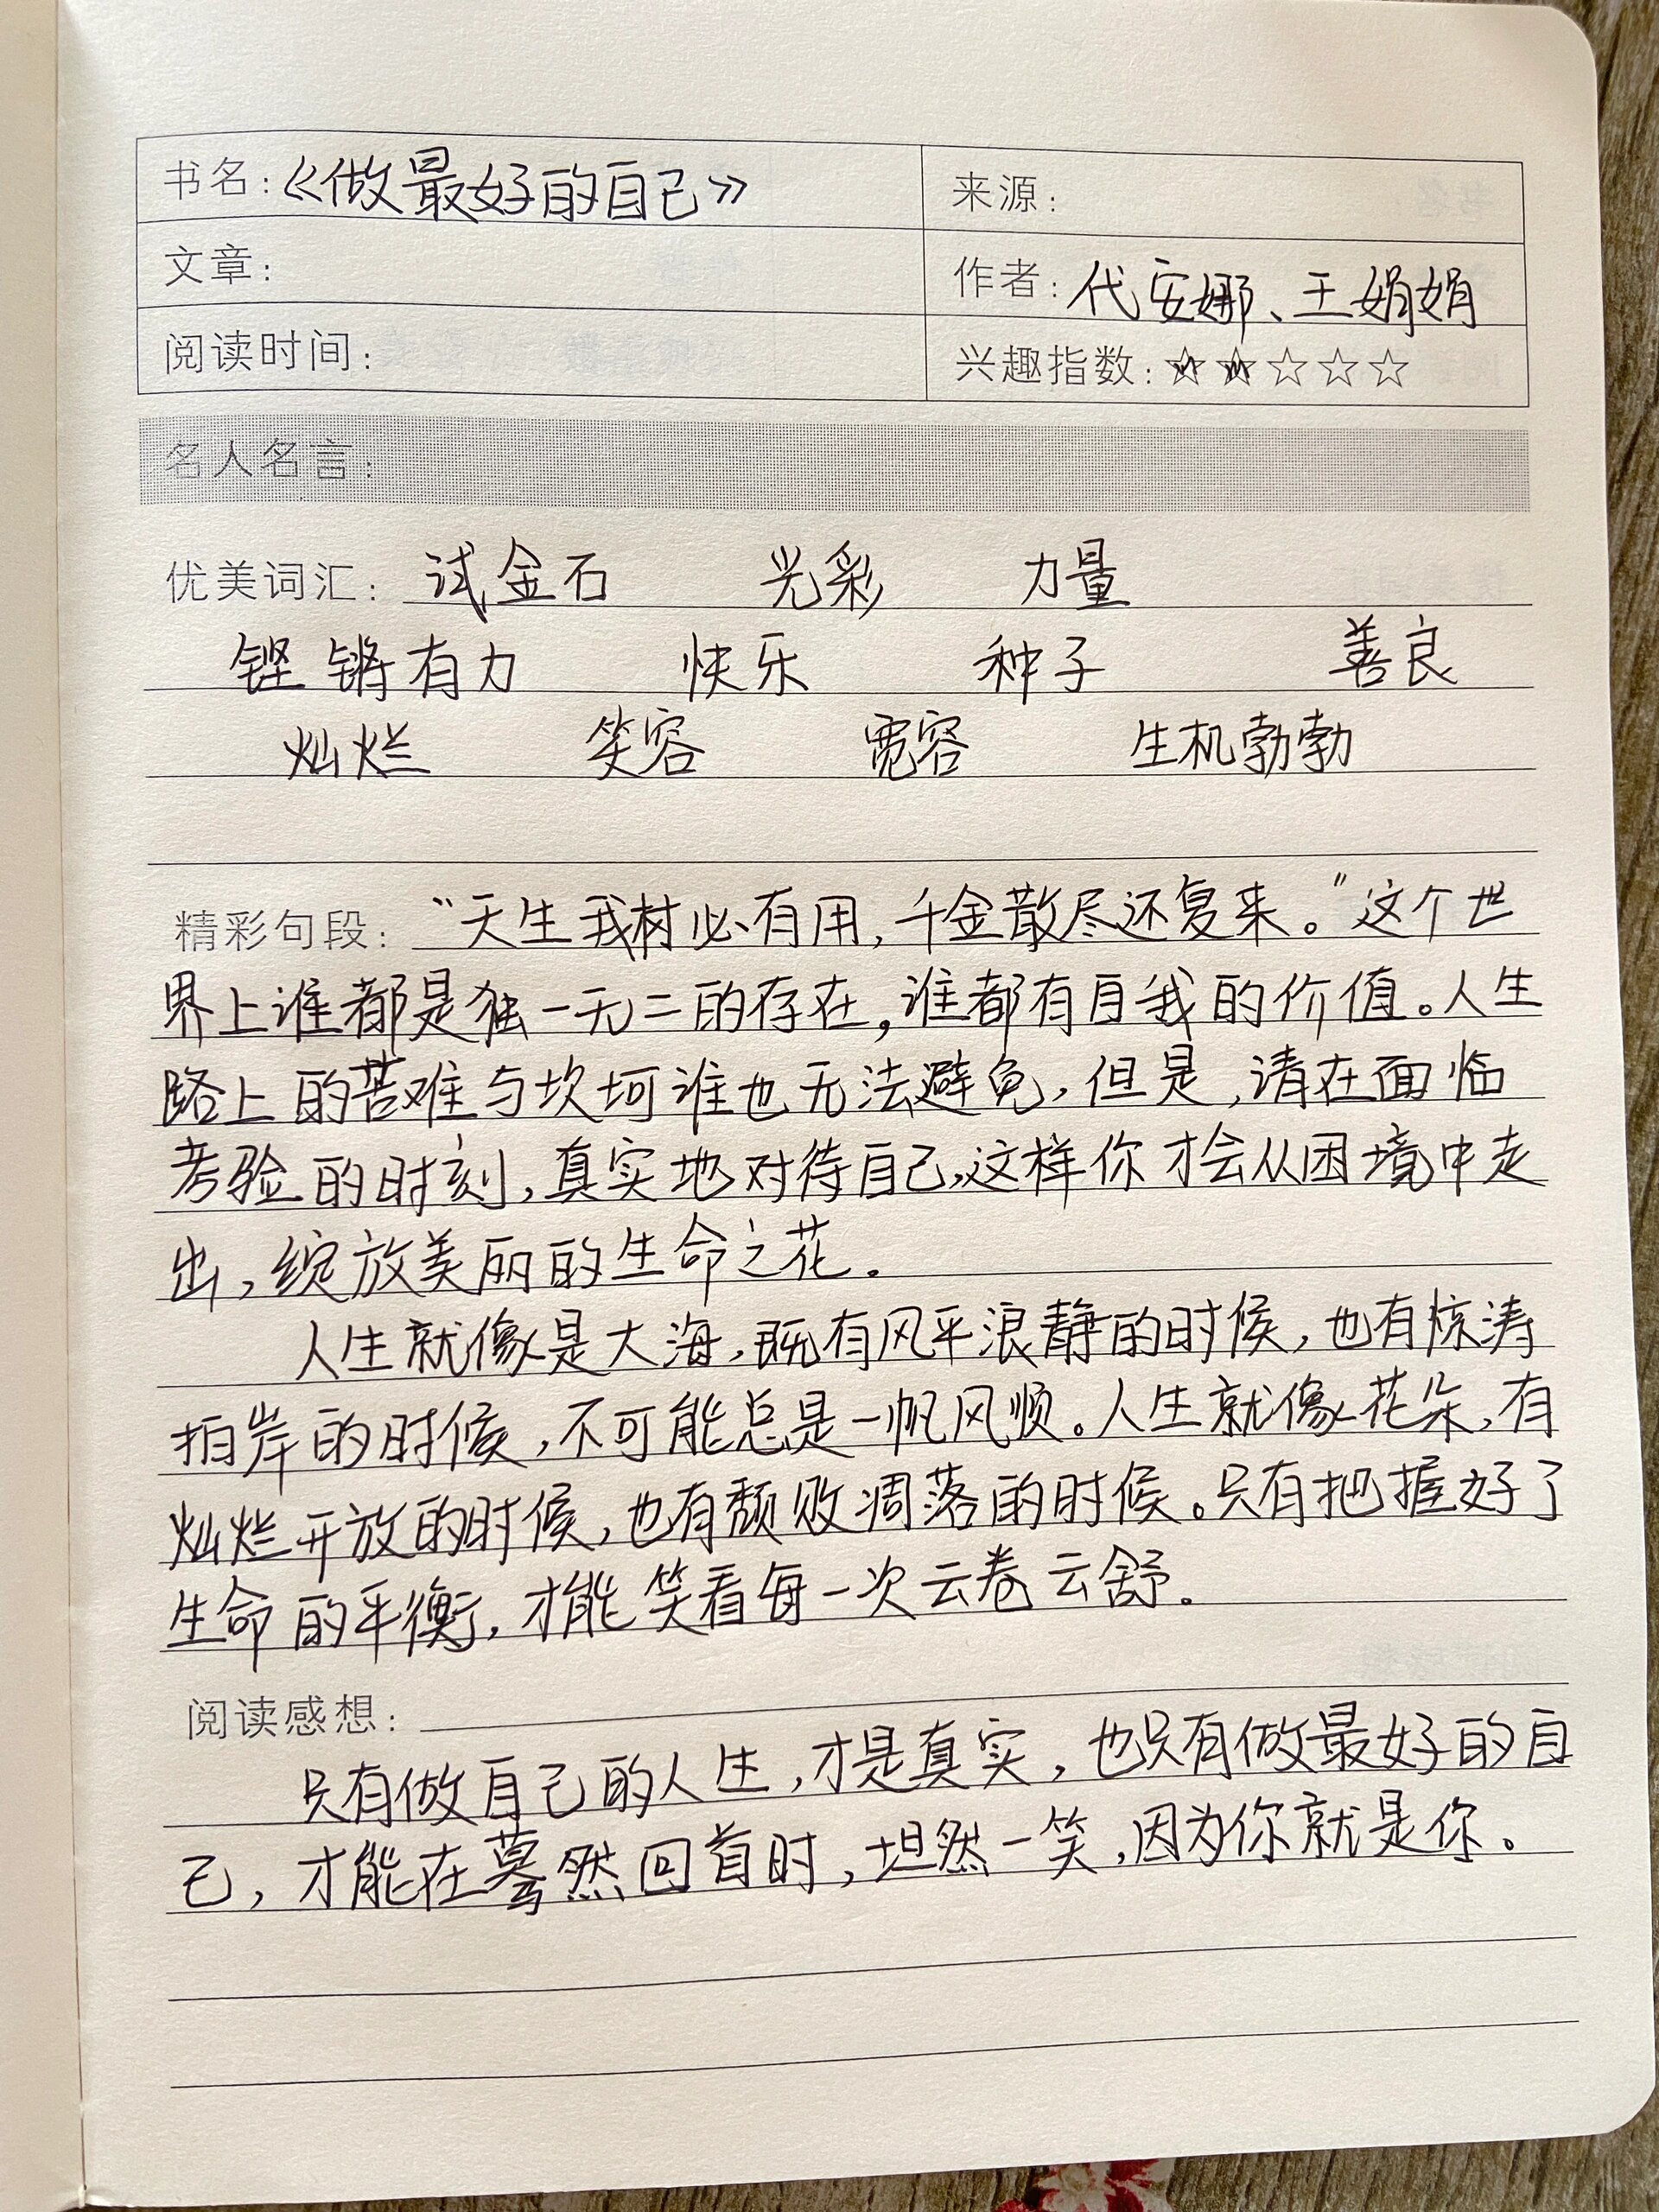 书名：《做最好的自己》 来源：
文章： 作者：代安娜、王娟娟
阅读时间： 兴趣指数：☆☆☆☆☆
名人名言：
优美词汇：试金石 光彩 力量
铿锵有力 快乐 种子 善良
灿烂 笑容 宽容 生机勃勃
精彩句段：“天生我材必有用，千金散尽还复来。”这个世
界上谁都是独一无二的存在，谁都有自我的价值。人生
路上的苦难与坎坷谁也无法避免，但是，请在面临
考验的时刻，真实地对待自己，这样你才会从困境中走
出，绽放美丽的生命之花。
人生就像是大海，既有风平浪静的时候，也有惊涛
拍岸的时候，不可能总是一帆风顺。人生就像花朵，有
灿烂开放的时候，也有颓败凋落的时候。只有把握好了
生命的平衡，才能笑看每一次云卷云舒。
阅读感想：
只有做自己的人生，才是真实，也只有做最好的自
己，才能在蓦然回首时，坦然一笑，因为你就是你。